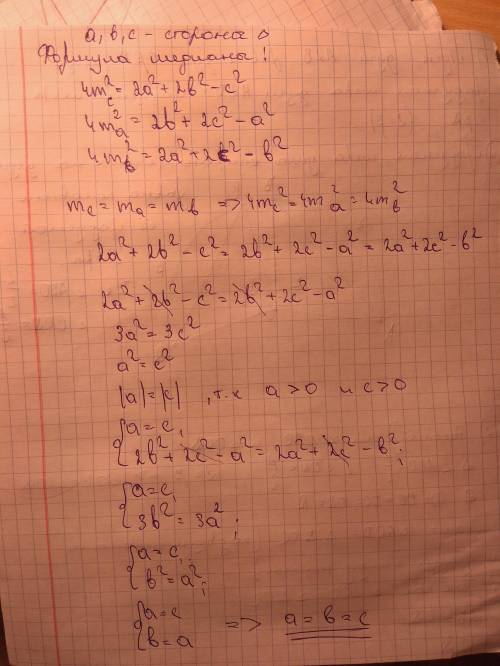 а, в, с - стороны △
Формула медианы!
4m_c² = 2a² + 2в² - c²
4m_a² = 2в² + 2c² - a²
4m_в² = 2a² + 2c² - в²
m_c = m_a = m_в => 4m_c² = 4m_a² = 4m_в²
2a² + 2в² - c² = 2в² + 2c² - a² = 2a² + 2c² - в²
2a² + 2в² - c² = 2в² + 2c² - a²
3a² = 3c²
a² = c²
|a| = |c| , т.к a > 0 и c > 0
{ a = c,
2в² + 2c² - a² = 2a² + 2c² - в²;
{ a = c,
3в² = 3a²;
{ a = c,
в² = a²;
{ a = c
в = a => a = в = c